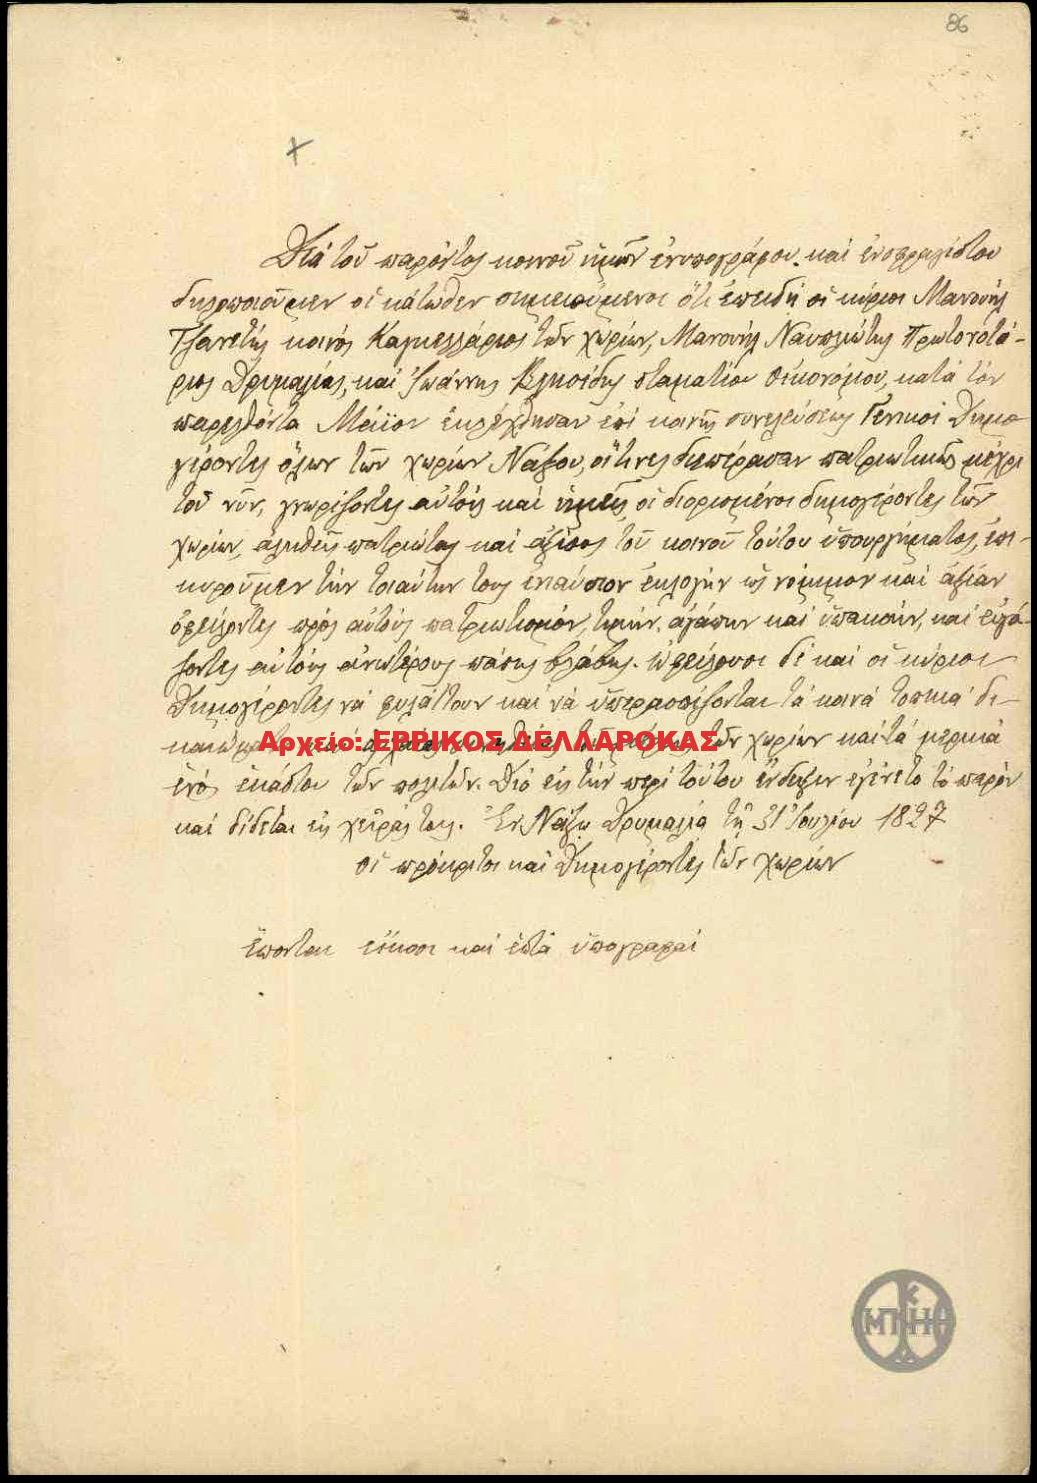 86
Διά τοῦ παρόντος κοινοῦ ἡμῶν ἐνυπογράφου καί ἐνσφραγίστου
δηλοποιοῦμεν οἱ κάτωθεν σημειούμενοι ὅτι ἐπειδή οἱ κύριοι Μανουήλ
Τζανετής κοινός Καγκελλάριος τῶν χωρίων, Μανουήλ Ναυπλιώτης Πρωτονοτά-
ριος Δρυμαλίας, καί Ἰωάννης σταματίου οἰκονόμου, κατά τόν
παρελθόντα Μάϊον ἐκλέχθησαν ἐπί κοινῆς συνελεύσεως Γενικοί Δημο
γέροντες ὅλων τῶν χωρίων Νάξου, οἵτινες διεπέρασαν πατριωτικῶς μέχρι
τοῦ νῦν, γνωρίζοντες αὐτούς καί ἡμεῖς οἱ διορισμένοι δημογέροντες τῶν
χωρίων, ἀληθεῖς πατριώτας καί ἀξίους τοῦ κοινοῦ τούτου ὑπουργήματος, ἐπι-
κυροῦμεν τήν τοιαύτην τους ἐκλογήν ὡς νόμιμον καί ἀξίαν
ὀφείλοντες πρός αὐτούς πατριωτισμόν, τιμήν, ἀγάπην καί ὑπακοήν, καί
ζοντες αὐτούς ἀνωτέρους πάσης βλάβης. ὀφείλουσι δέ καί οἱ κύριοι
Δημογέροντες νά φυλάττουν καί νά ὑπερασπίζονται τά κοινά τοπικά δι-
καιώματα καί τῶν χωρίων καί τά μερικά
ἑνός ἑκάστου τῶν πολιτῶν. Διό εἰς τήν περί τούτου ἔνδειξιν ἐγένετο τό παρόν
καί δίδεται εἰς χεῖράς τους. Ἐν Νάξῳ Δρυμαλίᾳ τῇ 31 Ἰουλίου 1827
οἱ πρόκριτοι καί Δημογέροντες τῶν χωρίων
ἕπονται εἴκοσι καί ἑπτά ὑπογραφαί
Αρχείο: ΕΡΡΙΚΟΣ ΔΕΛΛΑΡΟΚΑΣ